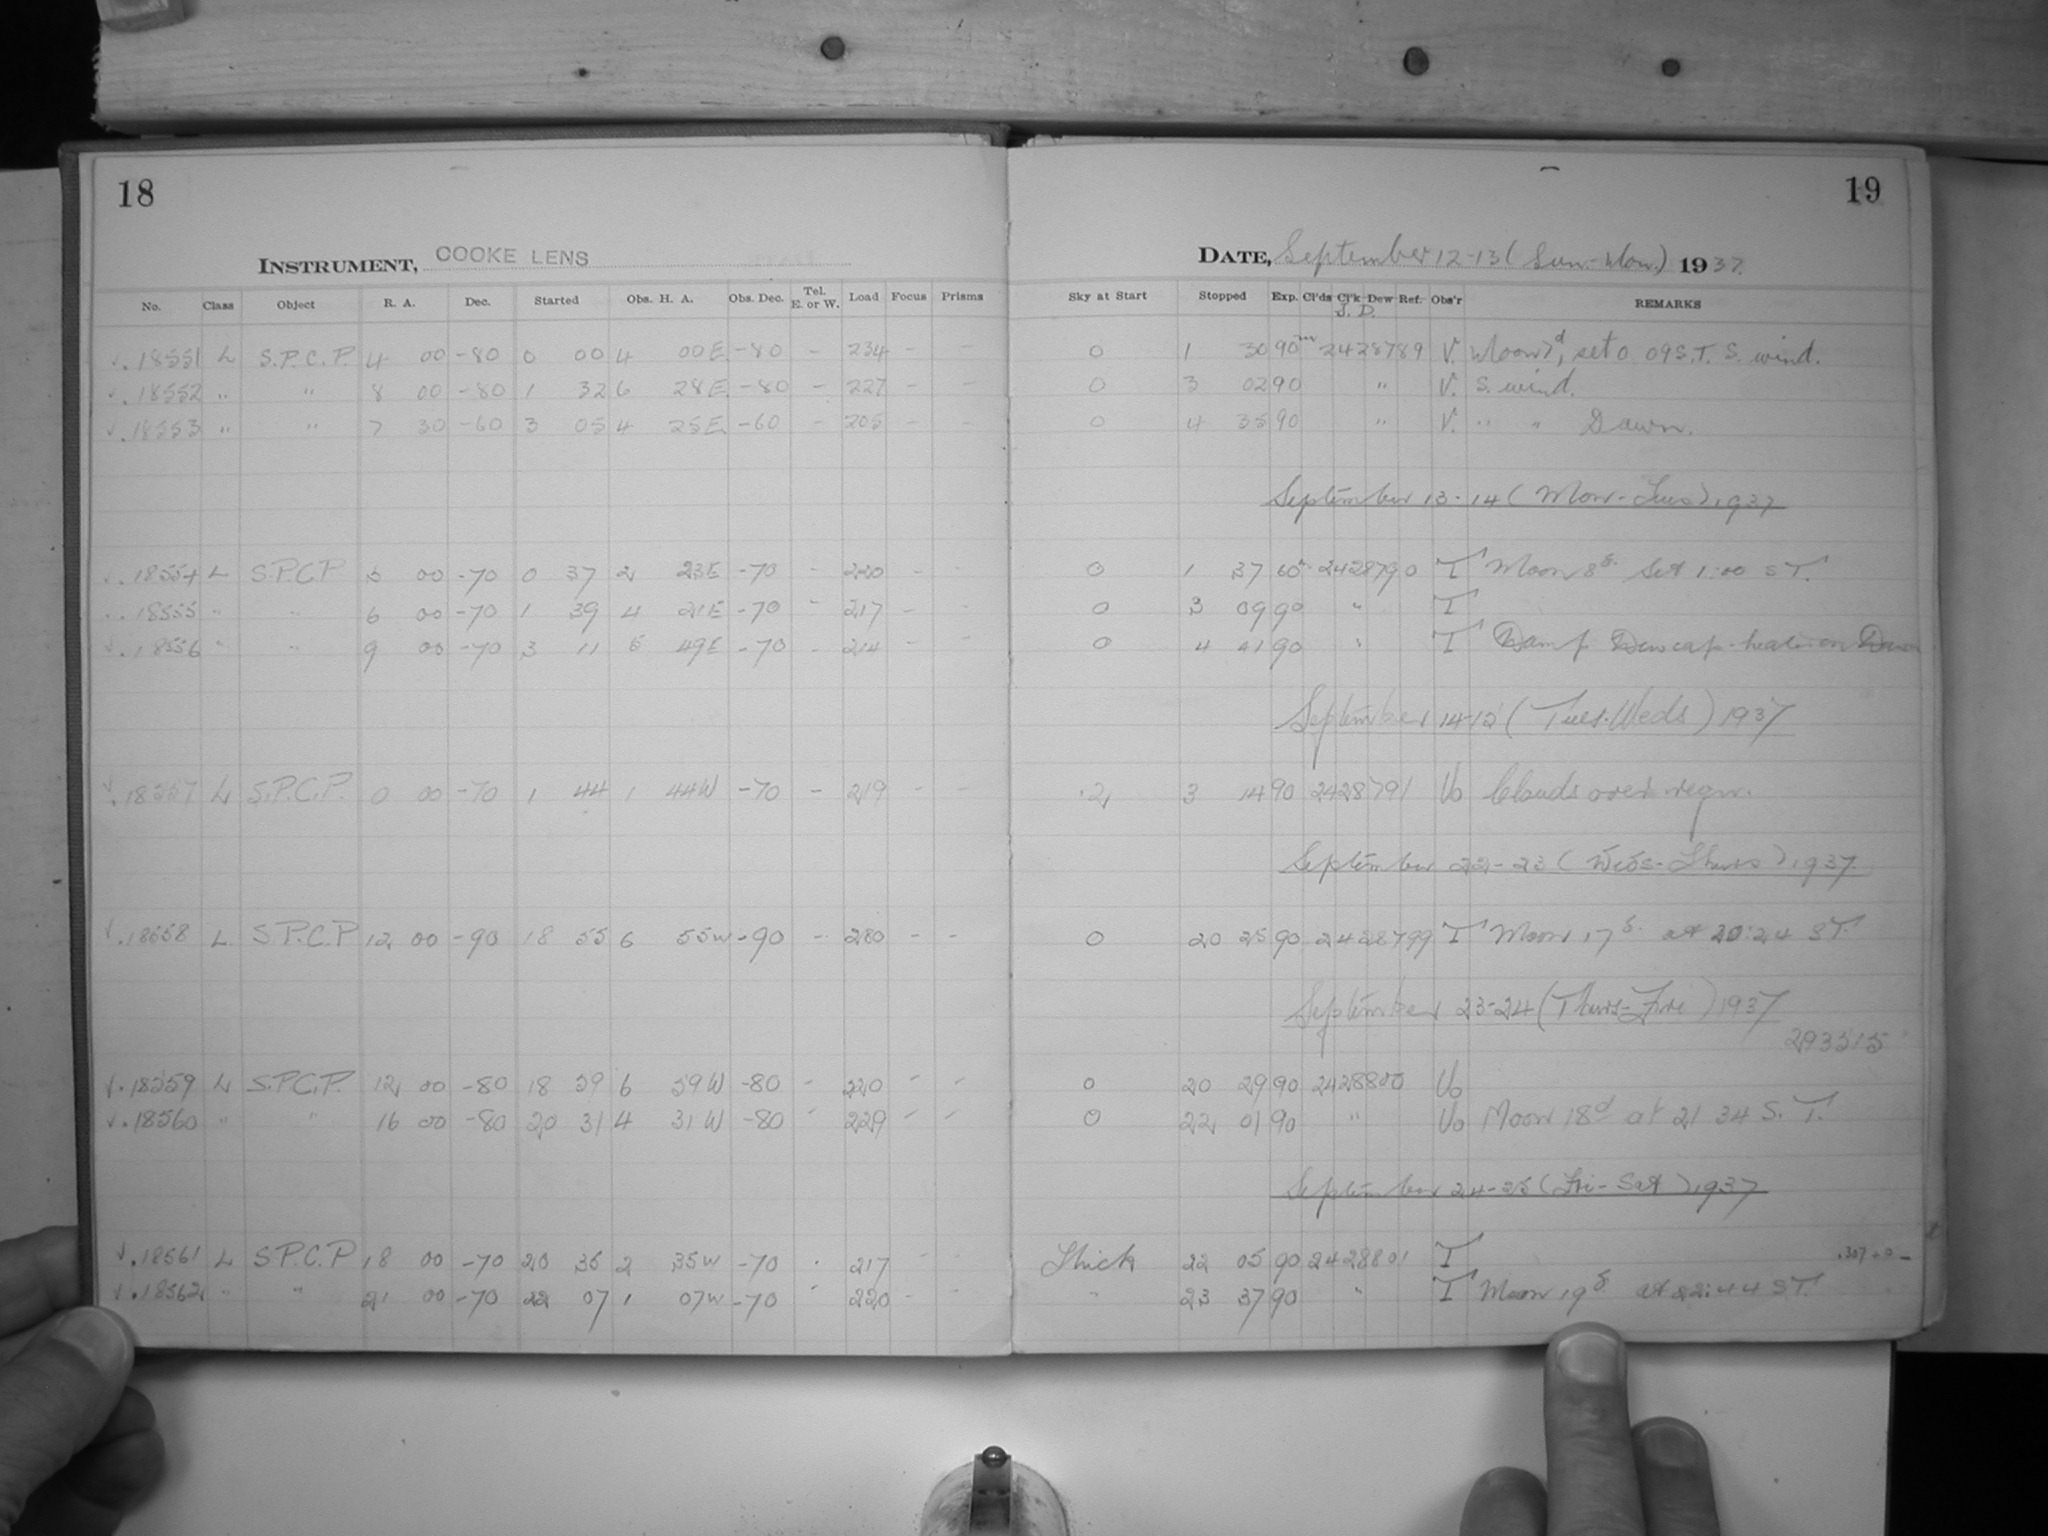 18
19
INSTRUMENT, COOKE LENS
DATE, September 12-13 (Sun-Mon.) 1937.
No. Class Object R. A. Dec. Started Obs. H. A. Obs. Dec. Tel. E. or W. Load Focus Prisms Sky at Start Stopped Exp. Cl'ds Cl'k Dew Ref. Obs'r REMARKS
J. D.
√. 18551 L S.P.C.P. 4 00 -80 0 00 4 00E -80 - 234 - - 0 1 30 90m 2428789 V. Moon 7d, set 0 09 S.T. S. wind.
√. 18552 " " 8 00 -80 1 32 6 28E -80 - 227 - - 0 3 02 90 " V. S. wind.
√. 18553 " " 7 30 -60 3 05 4 25E -60 - 205 - - 0 4 35 90 " V. " " Dawn.
September 13-14 (Mon-Tues) 1937
√. 18554 L S.P.C.P 3 00 -70 0 37 2 23E -70 - 220 - - 0 1 37 60m 2428790 T Moon 8d. Set 1:00 ST.
. 18555 " " 6 00 -70 1 39 4 21E -70 - 217 - - 0 3 09 90 " T
√. 18556 " " 9 00 -70 3 11 5 49E -70 - 214 - - 0 4 41 90 " T Damp Dewcap-heater on Dawn
September 14-15 (Tues-Weds) 1937
√. 18557 L S.P.C.P. 0 00 -70 1 44 1 44W -70 - 219 - - .2 3 14 90 2428791 Uo Clouds over region.
September 22-23 (Weds-Thurs) 1937.
√. 18558 L. S.P.C.P 12 00 -90 18 55 6 55W -90 - 280 - - 0 20 25 90 2428799 T Moon 17d. at 20:24 ST
September 23-24 (Thurs-Fri) 1937
293515
√. 18559 L S.P.C.P. 12 00 -80 18 59 6 59W -80 - 220 - - 0 20 29 90 2428800 Uo
√. 18560 " " 16 00 -80 20 31 4 31W -80 - 229 - - 0 22 01 90 " Uo Moon 18d at 21 34 S.T.
September 24-25 (Fri-Sat) 1937
√. 18561 L S.P.C.P 18 00 -70 20 35 2 35W -70 - 217 - - Thick 22 05 90 2428801 T
√. 18562 " " 21 00 -70 22 07 1 07W -70 - 220 - - " 23 37 90 " T Moon 19d at 22:44 ST.